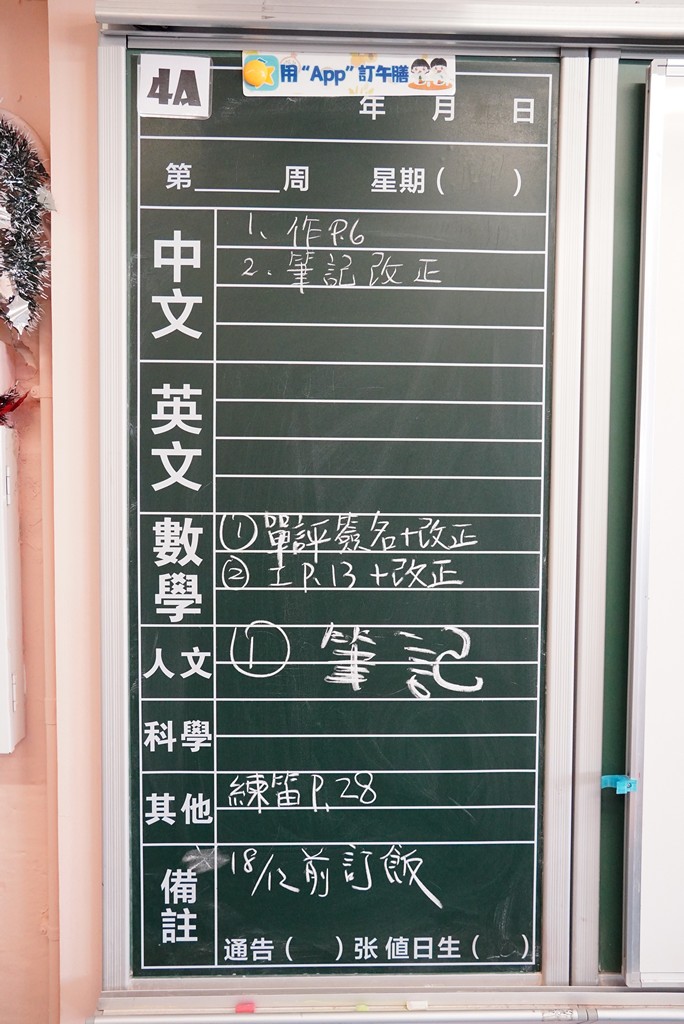 4A
用“App”訂午膳
年 月 日
第______周 星期( )
中文
1、作P.6
2、筆記改正
英文
數學
①單評簽名+改正
②工P.13+改正
人文
①筆記
科學
其他
練笛P.28
備註
18/12前訂飯
通告( )张 值日生( )